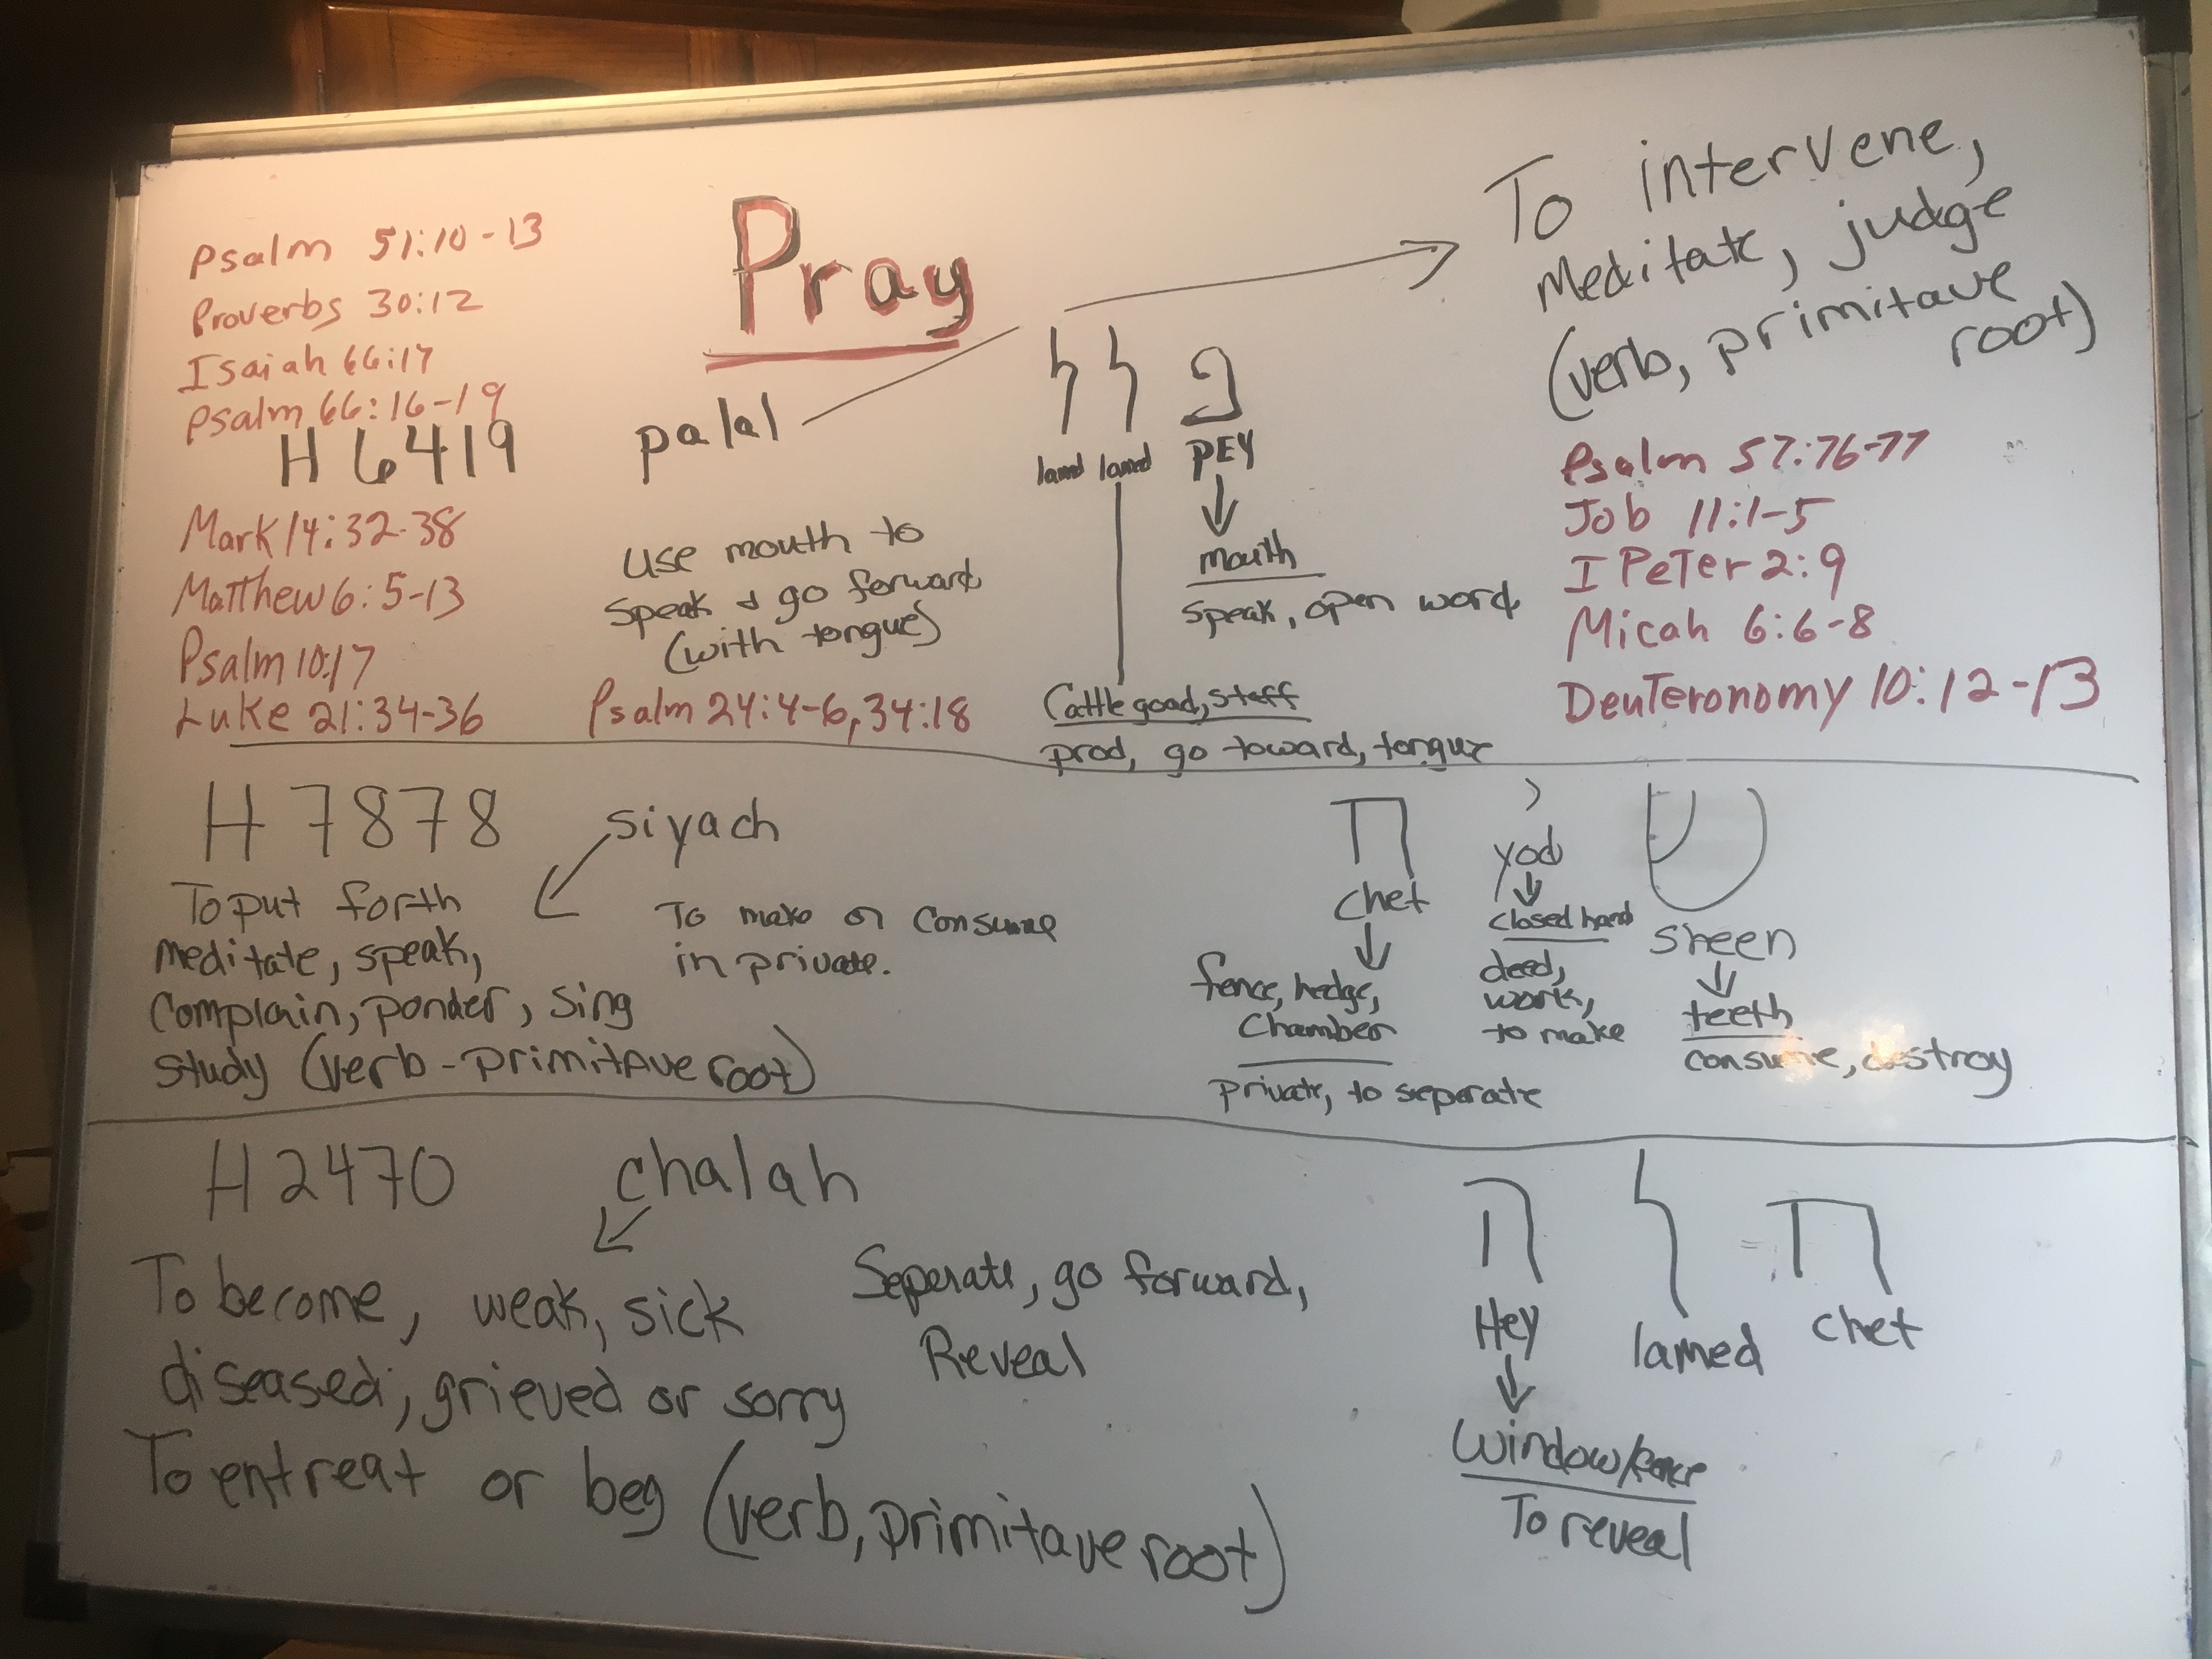 Pray
Psalm 51:10-13
Proverbs 30:12
Isaiah 66:17
Psalm 66:16-19
H 6419
Mark 14:32-38
Matthew 6:5-13
Psalm 10:17
Luke 21:34-36
palal
Use mouth to
speak & go forward
(with tongue)
Psalm 24:4-6, 34:18
ל ל פ
lamd lamd PEY
mouth
speak, open word
Cattle goad, staff
prod, go toward, tongue
To intervene,
Meditate, judge
(verb, primitave
root)
Psalm 57:76-77
Job 11:1-5
I Peter 2:9
Micah 6:6-8
Deuteronomy 10:12-13
H 7878
siyach
To put forth
meditate, speak,
complain, ponder, sing
study (verb-primitave root)
To make or consume
in private.
ח י ש
chet yod sheen
fence, hedge,
chamber
private, to seperate
closed hand
deed,
work,
to make
teeth
consume, destroy
H 2470
chalah
To become, weak, sick
diseased, grieved or sorry
To entreat or beg (verb, primitave root)
Seperate, go forward,
Reveal
ה ל ח
Hey lamed chet
window/fence
To reveal